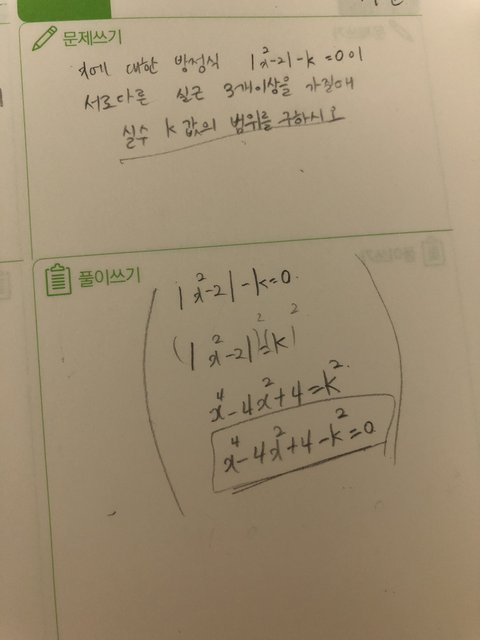 문제쓰기
x에 대한 방정식 |x²-2|-k=0이
서로다른 실근 3개이상을 가질때
실수 k값의 범위를 구하시오
풀이쓰기
|x²-2|-k=0.
(|x²-2|)²=(k)²
x⁴-4x²+4=k².
x⁴-4x²+4-k²=0